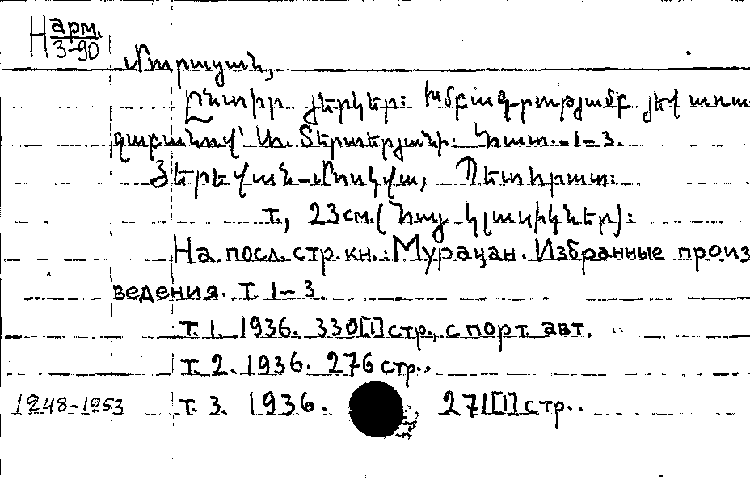 Н арм.
3-90
Մուրացան,
Ընտիր յերկեր: Խմբագրությամբ յեվ առա
ջաբանով՝ Առ. Տերտերյանի: Հատ. 1-3.
Յերեվան-Մոսկվա, Պետհրատ:
т., 23см. (Հայ կլասիկներ):
На посл. стр. кн.: Мурацан. Избранные произ
ведения. Т. 1-3.
т. 1. 1936. 330[I] стр., с порт. авт.
т. 2. 1936. 276 стр.
1248-1253 т. 3. 1936. , 271[I] стр..